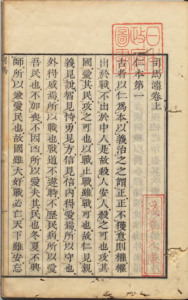 司馬灋卷上
仁本第一
古者以仁為本以義治之之謂正正不獲意則權權
出於戰不出於中人是故殺人安人殺之可也攻其
國愛其民攻之可也以戰止戰雖戰可也故仁見親
義見說智見恃勇見方信見信內得愛焉所以守也
外得威焉所以戰也戰道不違時不歷民病所以愛
吾民也不加喪不因凶所以愛夫其民也冬夏不興
師所以兼愛民也故國雖大好戰必亡天下雖安忘